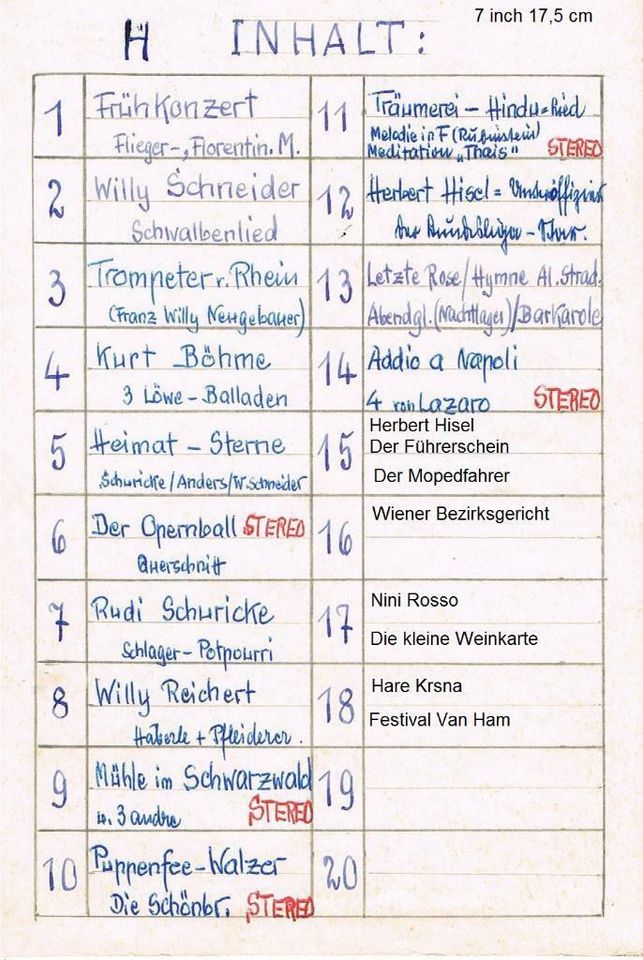 7 inch 17,5 cm
H INHALT:
1 Frühkonzert
Flieger-, Florentin. M.
2 Willy Schneider
Schwalbenlied
3 Trompeter v. Rhein
(Franz Willy Neugebauer)
4 Kurt Böhme
3 Löwe - Balladen
5 Heimat - Sterne
Schuricke/Anders/W. Schneider
6 Der Opernball STEREO
Querschnitt
7 Rudi Schuricke
Schlager - Potpourri
8 Willy Reichert
Häberle + Pfleiderer.
9 Mühle im Schwarzwald
u. 3 andre STEREO
10 Puppenfee-Walzer
Die Schönbr. STEREO
11 Träumerei - Hindu=Lied
Melodie in F (Rubinstein)
Meditation „Thais" STEREO
12 Herbert Hisel = Unteroffizier
der
13 Letzte Rose/Hymne Al. Strad.
Abendgl. (Nachtlager)/Barkarole
14 Addio a Napoli
4 von Lazaro STEREO
15 Herbert Hisel
Der Führerschein
Der Mopedfahrer
16 Wiener Bezirksgericht
17 Nini Rosso
Die kleine Weinkarte
18 Hare Krsna
Festival Van Ham
19
20